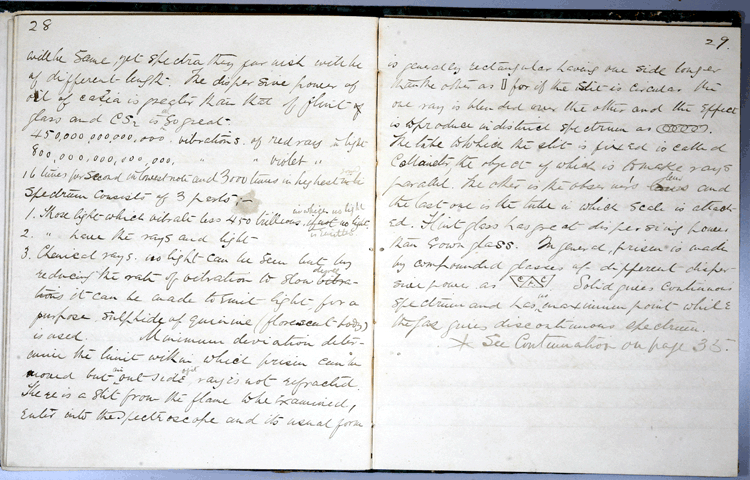 28
will be same, yet spectra they furnish will be
of different length. The dispersive power of
oil of casia is greater than that of flint
glass and CS2 is so great.
450,000,000,000,000, vibrations of red rays in light
800,000,000,000,000, " " violet "
16 times per second in lowest note and 3000 times in highest
Spectrum consists of 3 parts;-
1. Those light which vibrate less 450 trillions, in which no light is emitted
2. " have the rays and light
3. Chemical rays. no light can be seen but by
reducing the rate of vibration to slow vibra-
tions it can be made to emit light. for a
purpose sulphide of quinine (florescent body)
is used. Minimum deviation deter-
mine the limit within which prism can be
moved but outside rays is not refracted.
There is a slit from the flame to be examined,
enter into the spectroscope and its usual form
29.
is generally rectangular having one side longer
than the other as for if the slit is circular the
one ray is blended over the other and the effect
is to produce indistinct spectrum as
The tube to which the slit is fixed is called
the object of which is to make rays
parallel. The other is the observers and
the last one is the tube in which scale is attach-
ed. Flint glass has great dispersing power
than crown glass. In general, prism is made
by compounded glasses of different disper-
sive power as Solid gives continuous
spectrum and has maximum point while
the gas gives discontinuous spectrum.
See Continuation on page 35.